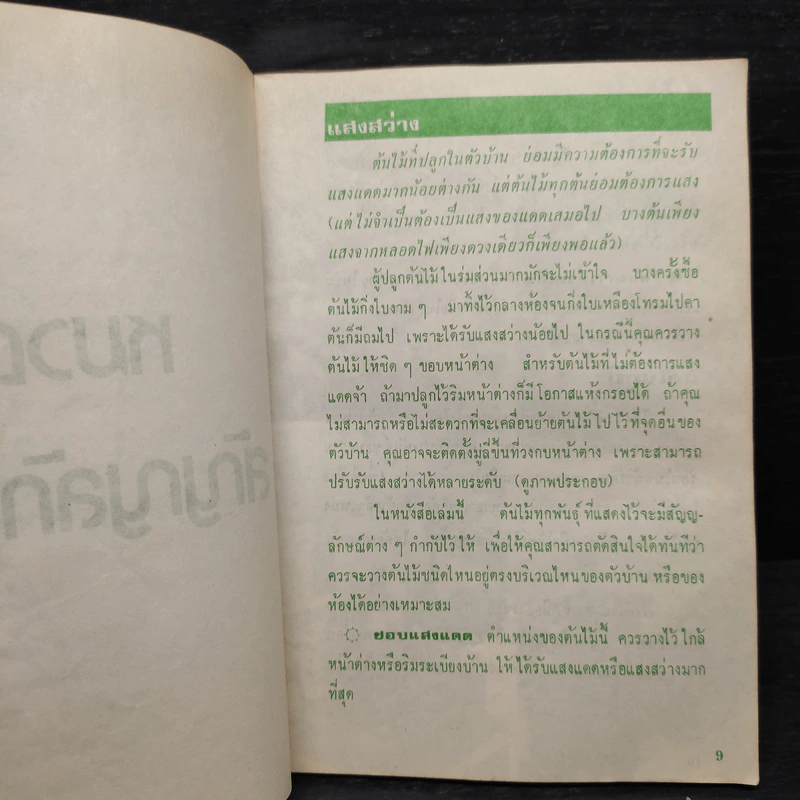 แสงสว่าง
ต้นไม้ที่ปลูกในตัวบ้าน ย่อมมีความต้องการที่จะรับ
แสงแดดมากน้อยต่างกัน แต่ต้นไม้ทุกต้นย่อมต้องการแสง
(แต่ไม่จำเป็นต้องเป็นแสงของแดดเสมอไป บางต้นเพียง
แสงจากหลอดไฟเพียงดวงเดียวก็เพียงพอแล้ว)
ผู้ปลูกต้นไม้ในร่มส่วนมากมักจะไม่เข้าใจ บางครั้งซื้อ
ต้นไม้กิ่งใบงาม ๆ มาทิ้งไว้กลางห้องจนกิ่งใบเหลืองโทรมไปคา
ต้นก็มีถมไป เพราะได้รับแสงสว่างน้อยไป ในกรณีนี้คุณควรวาง
ต้นไม้ให้ชิด ๆ ขอบหน้าต่าง สำหรับต้นไม้ที่ไม่ต้องการแสง
แดดจ้า ถ้ามาปลูกไว้ริมหน้าต่างก็มีโอกาสแห้งกรอบได้ ถ้าคุณ
ไม่สามารถหรือไม่สะดวกที่จะเคลื่อนย้ายต้นไม้ไปไว้ที่จุดอื่นของ
ตัวบ้าน คุณอาจจะติดตั้งมู่ลี่ขึ้นที่วงกบหน้าต่าง เพราะสามารถ
ปรับรับแสงสว่างได้หลายระดับ (ดูภาพประกอบ)
ในหนังสือเล่มนี้ ต้นไม้ทุกพันธุ์ ที่แสดงไว้จะมีสัญญ-
ลักษณ์ต่าง ๆ กำกับไว้ให้ เพื่อให้คุณสามารถตัดสินใจได้ทันทีว่า
ควรจะวางต้นไม้ชนิดไหนอยู่ตรงบริเวณไหนของตัวบ้าน หรือของ
ห้องได้อย่างเหมาะสม
ชอบแสงแดด ตำแหน่งของต้นไม้นี้ ควรวางไว้ใกล้
หน้าต่างหรือริมระเบียงบ้าน ให้ได้รับแสงแดดหรือแสงสว่างมาก
ที่สุด
9